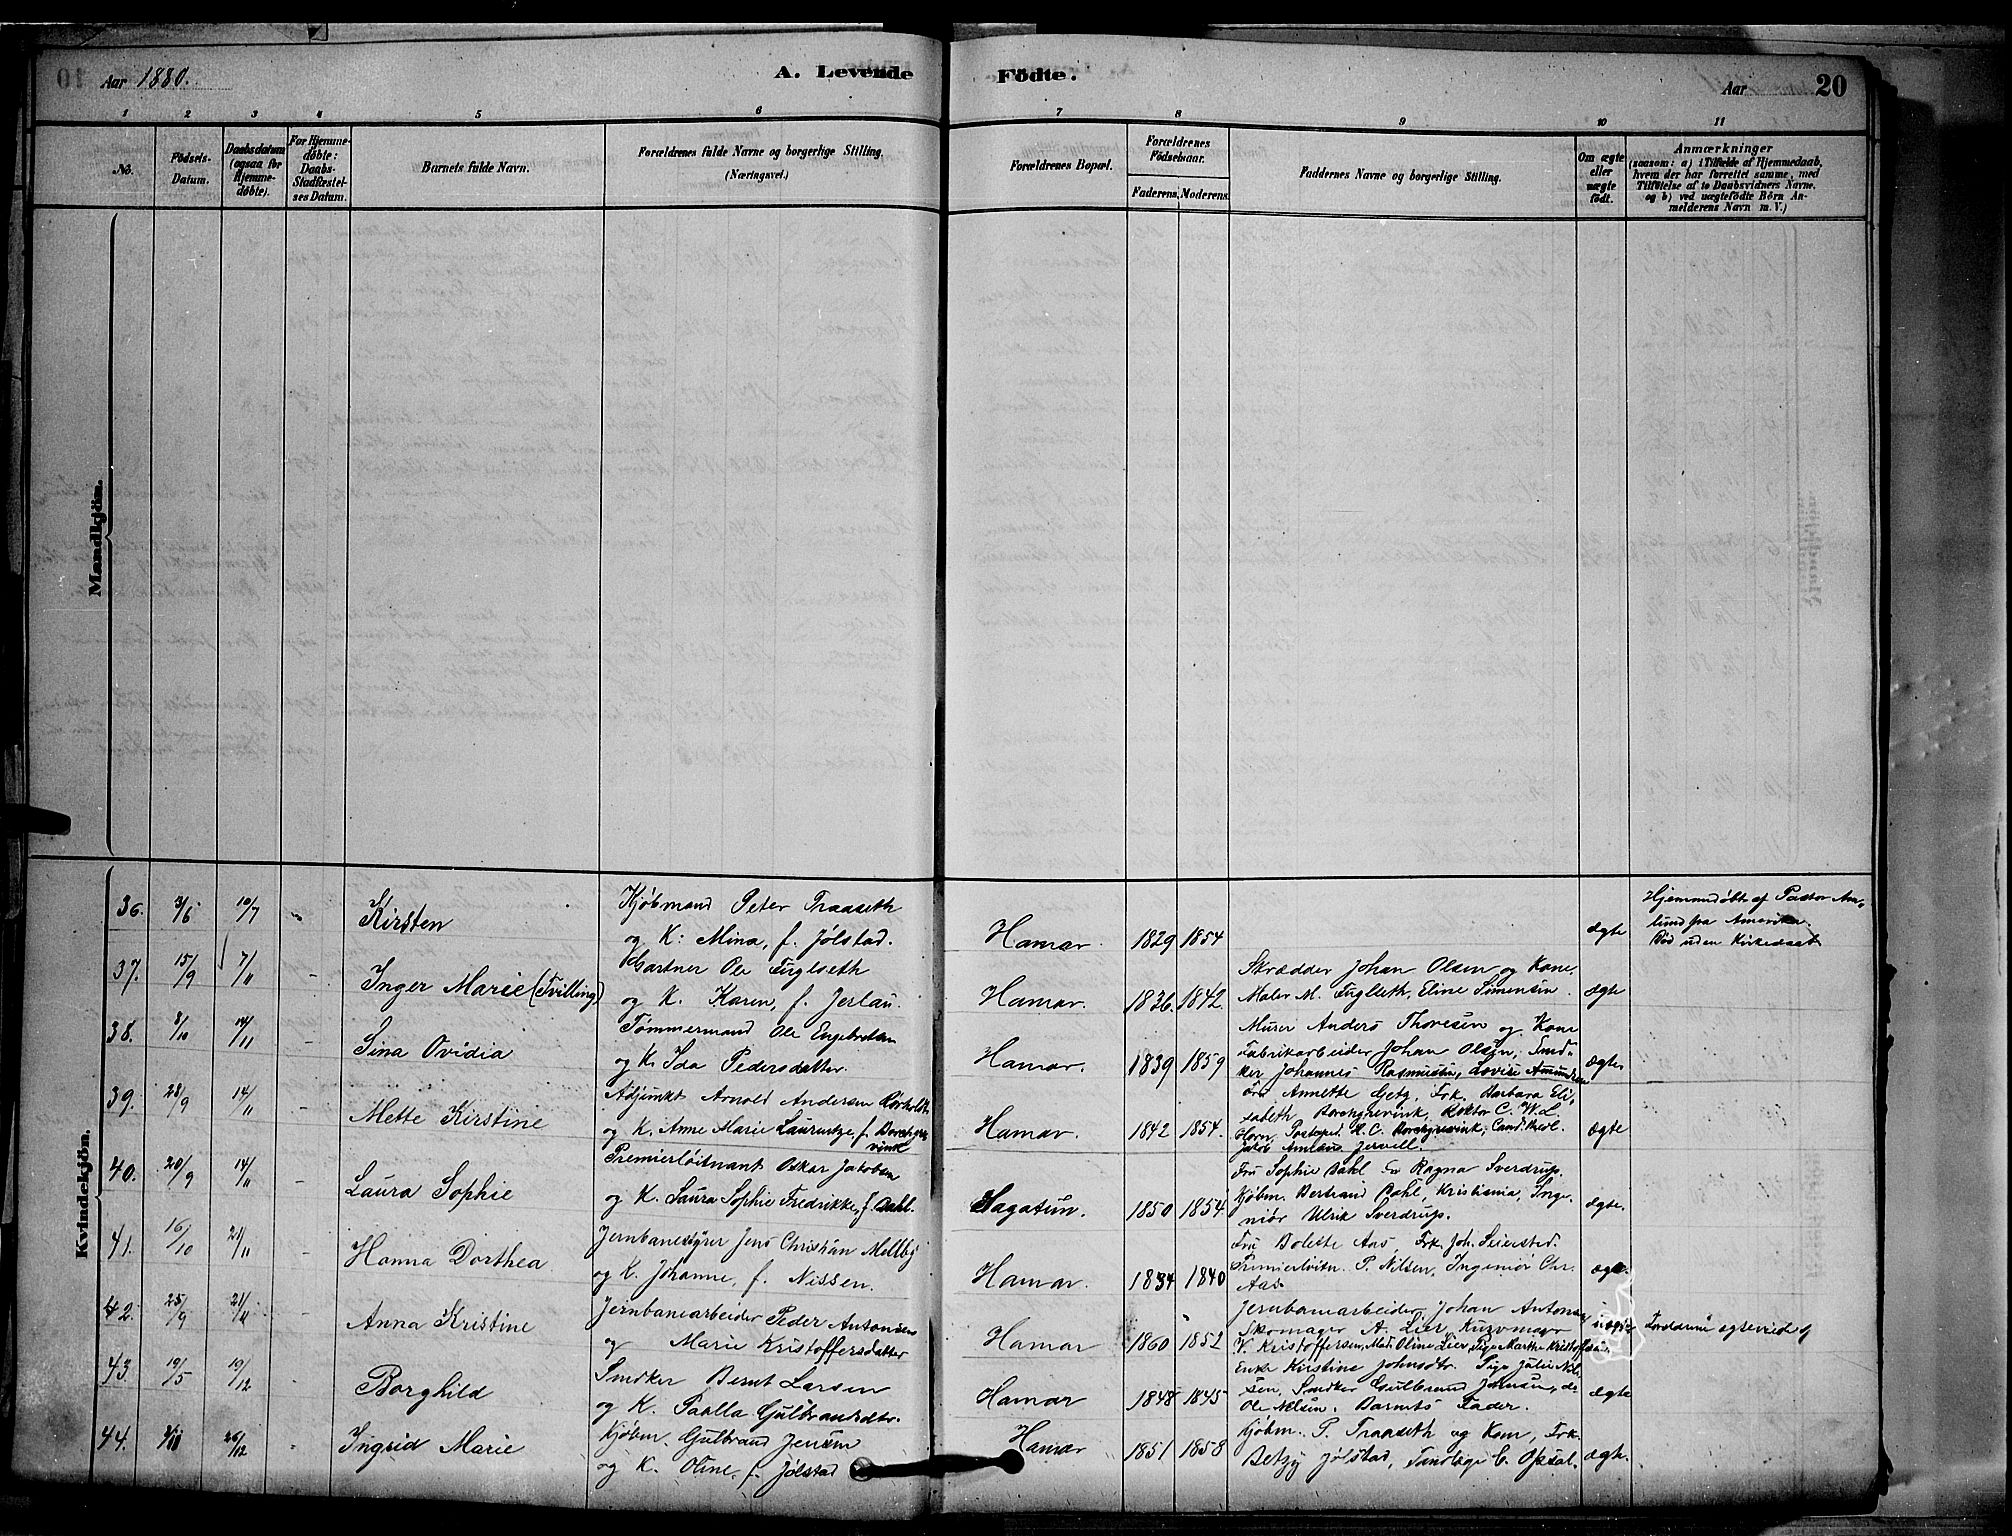 Aar 1880.
A. Levende Födte.
Aar
20
1 2 3 4 5 6 7 8 9 10 11
No.
Födsels-
Datum.
Daabsdatum
(ogsaa for
Hjemme-
døbte).
For Hjemme-
døbte:
Daabs-
Stadfæstel-
ses Datum.
Barnets fulde Navn.
Forældrenes fulde Navne og borgerlige Stilling.
(Næringsvei.)
Forældrenes Bopæl.
Forældrenes
Födselsaar.
Faderens. Moderens.
Faddernes Navne og borgerlige Stilling.
Om ægte
eller
uægte
født.
Anmærkninger
(saasom: a) i Tilfælde af Hjemmedaab,
hvem der har forrettet samme, med
Tilföielse af to Daabsvidners Navne,
og b) ved uægtefödte Börn An-
melderens Navn m.V.)
Mandkjön.
Kvindekjön.
36. 3/6 10/7 Kirsten
Kjøbmand Peter Traaseth
og K: Mina, f. Jølstad.
Hamar. 1829 1854 ægte
Hjemmedøbt af Pastor Am-
lund fra Amerika.
Død uden Kirkedaab
37. 15/9 7/11 Inger Marie (Tvilling)
Gartner Ole Fuglseth
og K. Karen, f. Jerlau.
Hamar. 1836. 1842.
Skrædder Johan Olsen og Kone.
Maler M. Fuglseth, Eline Simensen.
ægte
38. 8/10 14/11 Sina Ovidia
Tømmermand Ole Engebretsen
og K. Ida Pedersdatter.
Hamar. 1839 1859
Murer Anders Thoresen og Kone
Fabrikarbeider Johan Olsen, Sned-
ker Johannes Rasmussen, Lovise Amundsen
ægte
39. 28/9 14/11 Mette Kirstine
Adjunkt Arnold Andersen Rørholdt
og K. Anne Marie Laurentze, f. Borchgre-
vink
Hamar. 1842 1854.
Fru Annette Getz, Frk. Barbara Eli-
sabeth Borchgrevink, Rektor C. W. L.
Horn, Postexped. H. C. Borchgrevink, Cand. theol.
Jakob Jervell.
ægte
40. 20/9 14/11 Laura Sophie
Premierløitnant Oskar Jacobsen
og K. Laura Sophie Fredrikke, f. Dahl.
Hagatun. 1850 1854.
Fru Sophie Dahl Ragna Sverdrup.
Kjøbm. Bertrand Dahl, Kristiania, Inge-
niør Ulrik Sverdrup.
ægte.
41. 16/10 21/11 Hanna Dorthea
Jernbanebestyrer Jens Christian Mellbÿ
og K. Johanne, f. Nissen.
Hamar. 1834 1840
Fru Bolette Aas, Frk. Joh. Seiersted.
Premierløitn. P. Nilsen, Ingeniør Chr.
Aas
ægte.
42. 25/9 21/11 Anna Kristine
Jernbanearbeider Peder Antonsen
og Marie Kristoffersdatter
Hamar 1860 1852
Jernbanearbeider Johan Antonsen
Skomager A. Lier, Kurvmager
V. Kristoffersen, Mad. Oline Lier, Pige Marthe Kristoffersen
uægte
Forældrene agtevviede
43. 19/5 19/12 Borghild
Snedker Bernt Larsen
og K. Paulla Gulbrandsdtr.
Hamar 1848 1845
Enke Kirstine Johnsdtr. Pige Julie Niel-
sen, Snedker Gulbrand Johnsen, do
Ole Nielsen. Barnets Fader.
ægte
44. 26/12 Ingrid Marie
Kjøbm. Gulbrand Jensen
og K. Oline, f. Jølstad
Hamar 1851 1858
Kjøbm. P. Traaseth og Kone, Frk.
Betzy Jølstad, Tandlæge C. Opsal.
ægte.